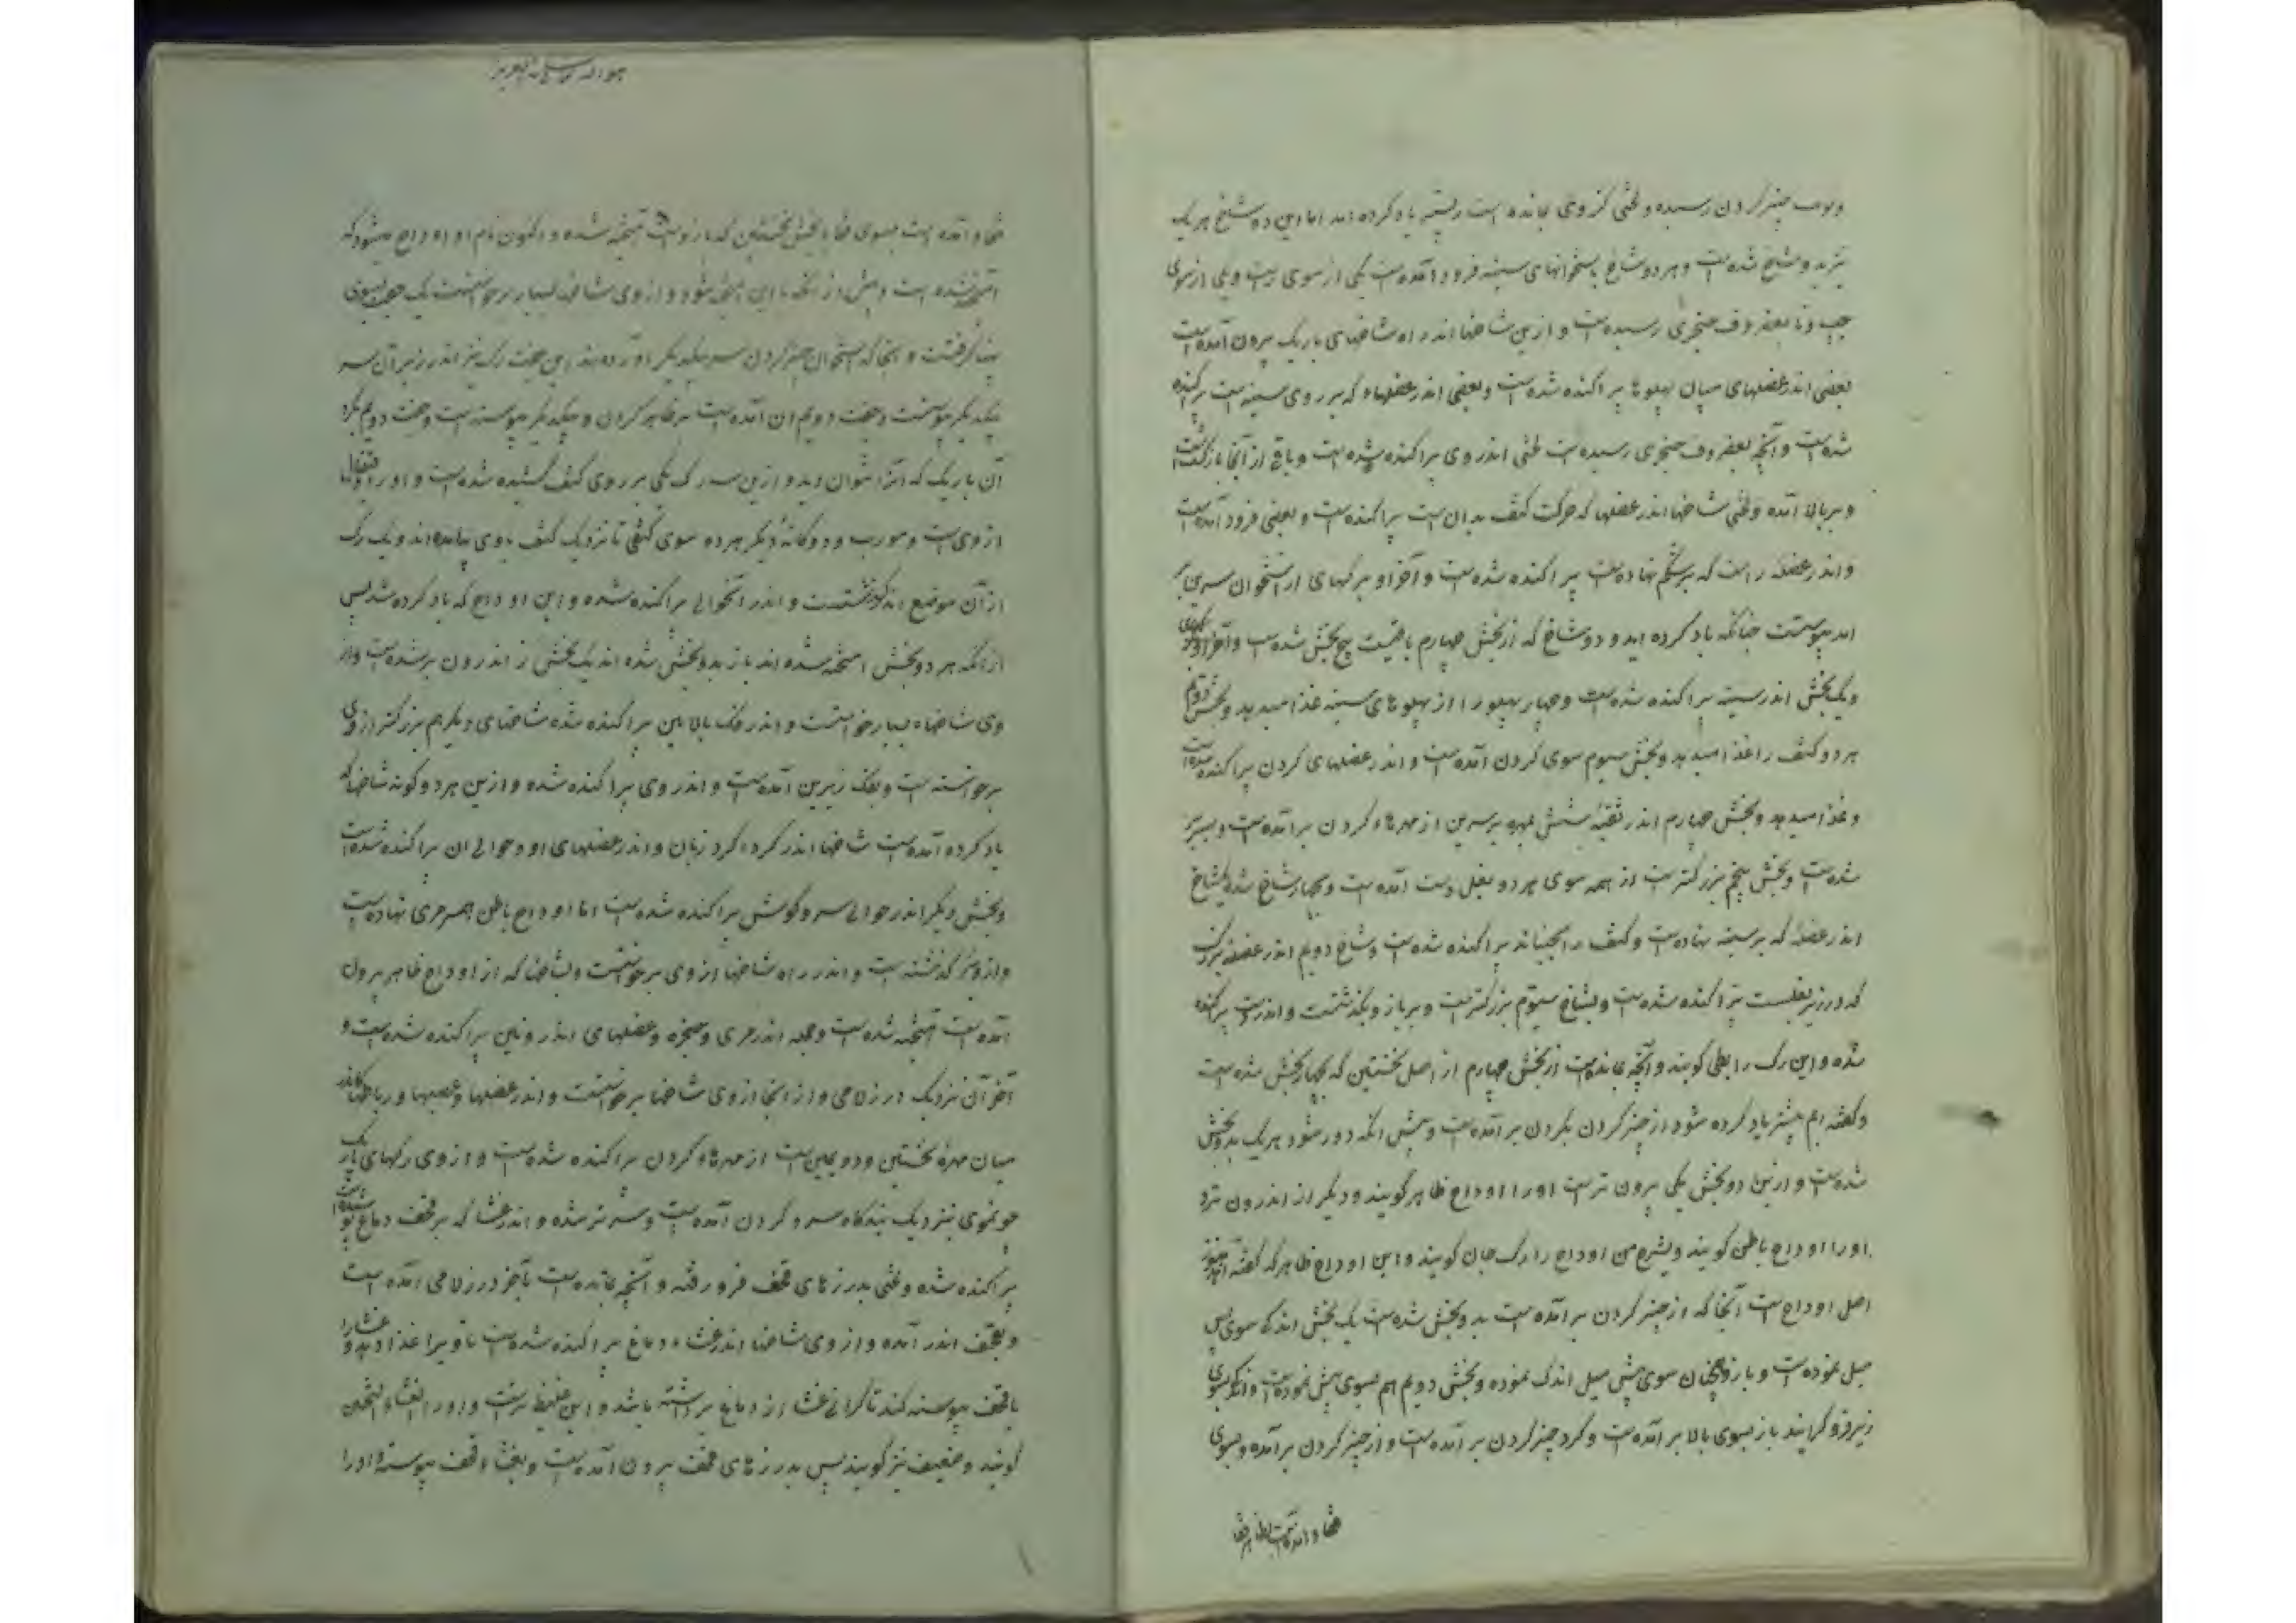 چنبر گردن رسیده و لختی کز وی بمانده است یاد کرده آمد اما این دو شاخ هر یک
دو شاخ شده است و هر دو شاخ باستخوانهای سینه فرود آمده است یکی از سوی راست و یکی از سوی
چپ و تا بغضروف حنجری رسیده است و ازین شاخها اندر راه شاخهای باریک بیرون آمده است
بعضی اندر عضلهای میان پهلوها پراکنده شده است و بعضی اندر عضلهاء که بر روی سینه است پراکنده
شده است و آنچه بغضروف حنجری رسیده است لختی اندر وی پراکنده شده است و باقی از آنجا بازگشته است
و ببالا آمده و لختی شاخها اندر عضلها که حرکت کتف بدان است پراکنده است و بعضی فرود آمده است
و اندر عضله راست که بر شکم نهاده است پراکنده شده است و آخر او برگهای از استخوان سرین
پیوستست چنانکه یاد کرده آید و دو شاخ که از بخش چهارم باقیست پنج بخش شده است
و یک بخش اندر سینه پراکنده شده است و چهار پهلو را از پهلوهای سینه غذا میدهد و بخش دوم
هر دو کتف را غذا میدهد و بخش سیوم سوی گردن آمده است و اندر عضلهای گردن پراکنده شده است
و غذا میدهد و بخش چهارم اندر ثقبه شش مهره برسرین از مهرهاء گردن برآمده است و بسر
شده است و بخش پنجم بزرگترست از همه سوی هر دو بغل دست آمده است و چهار شاخ شده یکشاخ
اندر عضله که بر سینه نهاده است و کتف را بجنباند پراکنده شده است و شاخ دویم اندر عضله بزرگ
که در زیر بغلست پراکنده شده است و شاخ سیوم بزرگترست و بر بازو بگذشتست و اندر دست پراکنده
شده و این رگ را ابطی گویند و آنچه بمانده است از بخش چهارم از اصل نخستین که بچهار بخش شده است
و گفته ایم پیشتر یاد کرده شود از چنبر گردن بگردن برآمده است و پیش از آنکه دور شود هر یک بدو بخش
شده است و ازین دو بخش یکی بیرون ترست او را اوداج ظاهر گویند و دیگر از اندرون ترد
او را اوداج باطن گویند و این اوداج را رگ جان گویند و این اوداج ظاهر که گفته آمد
اصل اوداج است آنجا که از چنبر گردن برآمده است بدو بخش شده است یک بخش اندکی سوی پس
میل نموده است و باز همچنان سوی پیش میل اندک نموده و بخش دویم هم بسوی پیش نموده است
زیر فرو گرایند باز بسوی بالا برآمده است و گرد چنبر گردن برآمده است و از چنبر گردن برآمده و بسوی
قفا و آمده است بسوی قفا با بخش نخستین که یاد آمیخته شده و اکنون نام او اوداج میشود که
آمیخته شده است و پیش از آنکه با این آمیخته شود و از وی شاخها بسیار برخاستست یک جفت بسوی
پهنا گرفتست و آنجا که استخوان چنبر گردن سر بیکدیگر آورده اند این جفت رگ نیز اندر زیر آن سر
بیکدیگر پیوستست و جفت دویم ان آمده است بر ظاهر گردن و بیکدیگر پیوسته است و جفت دویم
آن باریک که آنرا نتوان دید و ازین سه رگ یکی بر روی کتف کشیده شده است و او را قیفال
از وی است و دوگانهٔ دیگر هر دو سوی کتف تا نزدیک کتف با وی بیامده اند و یک رگ
از آن موضع اندر گذشتست و اندر آنحوالی پراکنده شده و این اوداج که یاد کرده شد پس
از آنکه هر دو بخش آمیخته شده اند باز بدو بخش شده اند یک بخش از اندرون برشده است و از
وی شاخهاء بسیار برخاستست و اندر فک بالائین پراکنده شده شاخهای دیگر هم بزرگتر از وی
برخاسته است و بفک زیرین آمده است و اندر وی پراکنده شده و ازین هر دو گونه شاخها که
یاد کرده آمده است شاخها اندر گرد گرد زبان و اندر عضلهای او و حوالی آن پراکنده شده است
و بخش دیگر اندر حوالی سر و گوش پراکنده شده است اما اوداج باطن همسر مری نهاده است
و از وی گذشته است و اندر راه شاخها از وی برخاستست و شاخها که از اوداج ظاهر بیرون
آمده است آمیخته شده است و جمله اندر مری و حنجره و عضلهای اندرونین پراکنده شده است و
آخر آن نزدیک درز لامی و از آنجا از وی شاخها برخاستست و اندر عضلها و عصبها و رباطها که اندر
میان مهرهٔ نخستین و دویمین است از مهرهاء گردن پراکنده شده است و از وی رگهای باریک
چو موی نزدیک بندگاه سر و گردن آمده است و اندر غشا که بر قحف دماغ پوشیده است
پراکنده شده و لختی بدرزهای قحف فرو رفته و آنچه بمانده است بآخر درز لامی آمده است
و بقحف اندر آمده و از وی شاخها اندر غشاء دماغ پراکنده شده است تا ویرا غذا دهد و غشا را
با قحف پیوسته کند تا گرانی غشا از دماغ برداشته باشد و این غلیظ ترست و او را الغشاء الثخین
گویند و صفیق نیز گویند پس بدرزهای قحف بیرون آمده است و بغشاء قحف پیوسته و او را